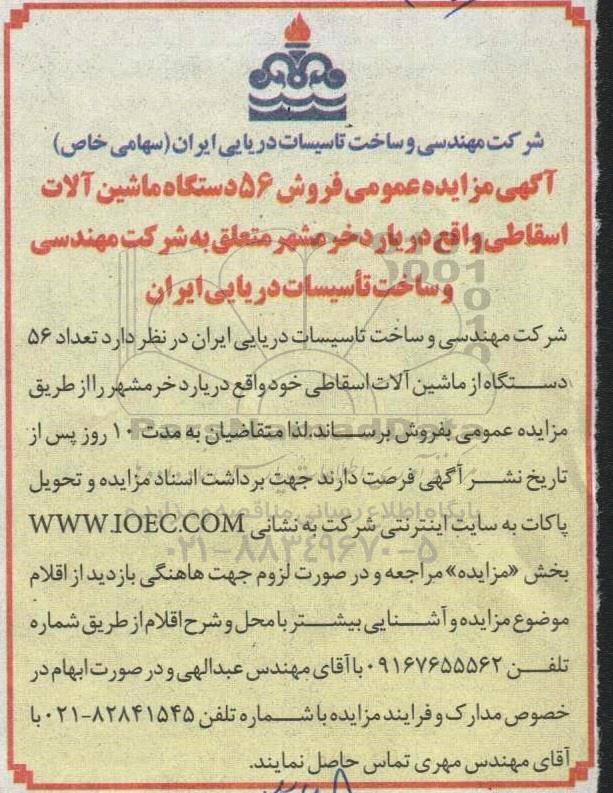 شرکت مهندسی و ساخت تاسیسات دریایی ایران (سهامی خاص)
آگهی مزایده عمومی فروش ۵۶ دستگاه ماشین آلات
اسقاطی واقع در یارد خرمشهر متعلق به شرکت مهندسی
و ساخت تأسیسات دریایی ایران
شرکت مهندسی و ساخت تاسیسات دریایی ایران در نظر دارد تعداد ۵۶
دستگاه از ماشین آلات اسقاطی خود واقع در یارد خرمشهر را از طریق
مزایده عمومی بفروش برساند. لذا متقاضیان به مدت ۱۰ روز پس از
تاریخ نشر آگهی فرصت دارند جهت برداشت اسناد مزایده و تحویل
پاکات به سایت اینترنتی شرکت به نشانی WWW.IOEC.COM
بخش «مزایده» مراجعه و در صورت لزوم جهت هاهنگی بازدید از اقلام
موضوع مزایده و آشنایی بیشتر با محل و شرح اقلام از طریق شماره
تلفن ۰۹۱۶۷۶۵۵۵۶۲ با آقای مهندس عبدالهی و در صورت ابهام در
خصوص مدارک و فرایند مزایده با شماره تلفن ۸۲۸۴۱۵۴۵-۰۲۱ با
آقای مهندس مهری تماس حاصل نمایند.
ParsNamadData
پایگاه اطلاع رسانی مناقصه و مزایده
۰۲۱-۸۸۳۴۹۶۷۰-۵